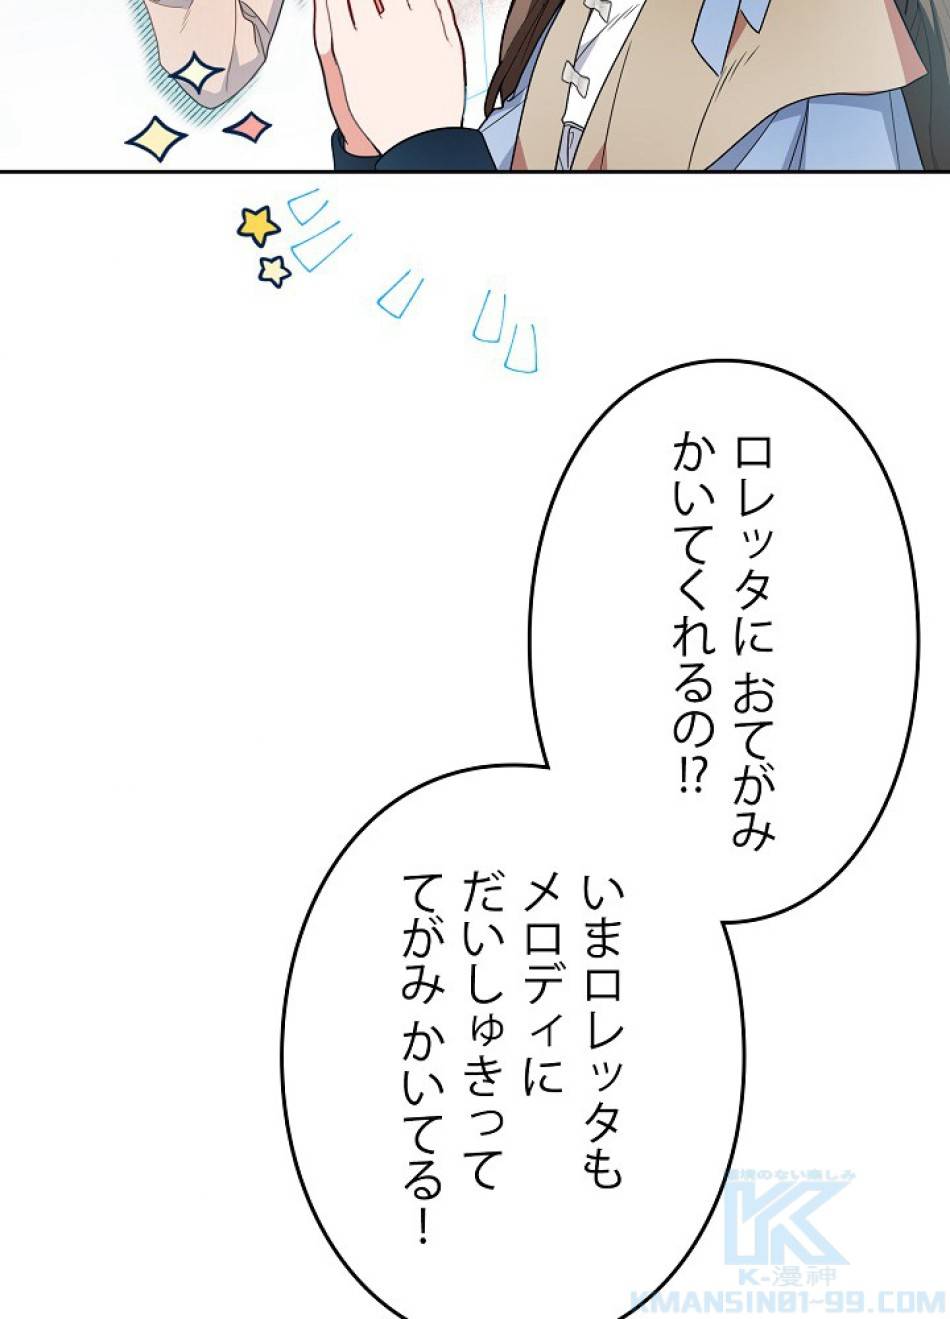 ロレッタに おてがみ
かいてくれるの!?
いまロレッタも
メロディに
だいしゅきって
てがみ かいてる!
限界のない楽しみ
K-漫神
KMANSIN01-99.COM